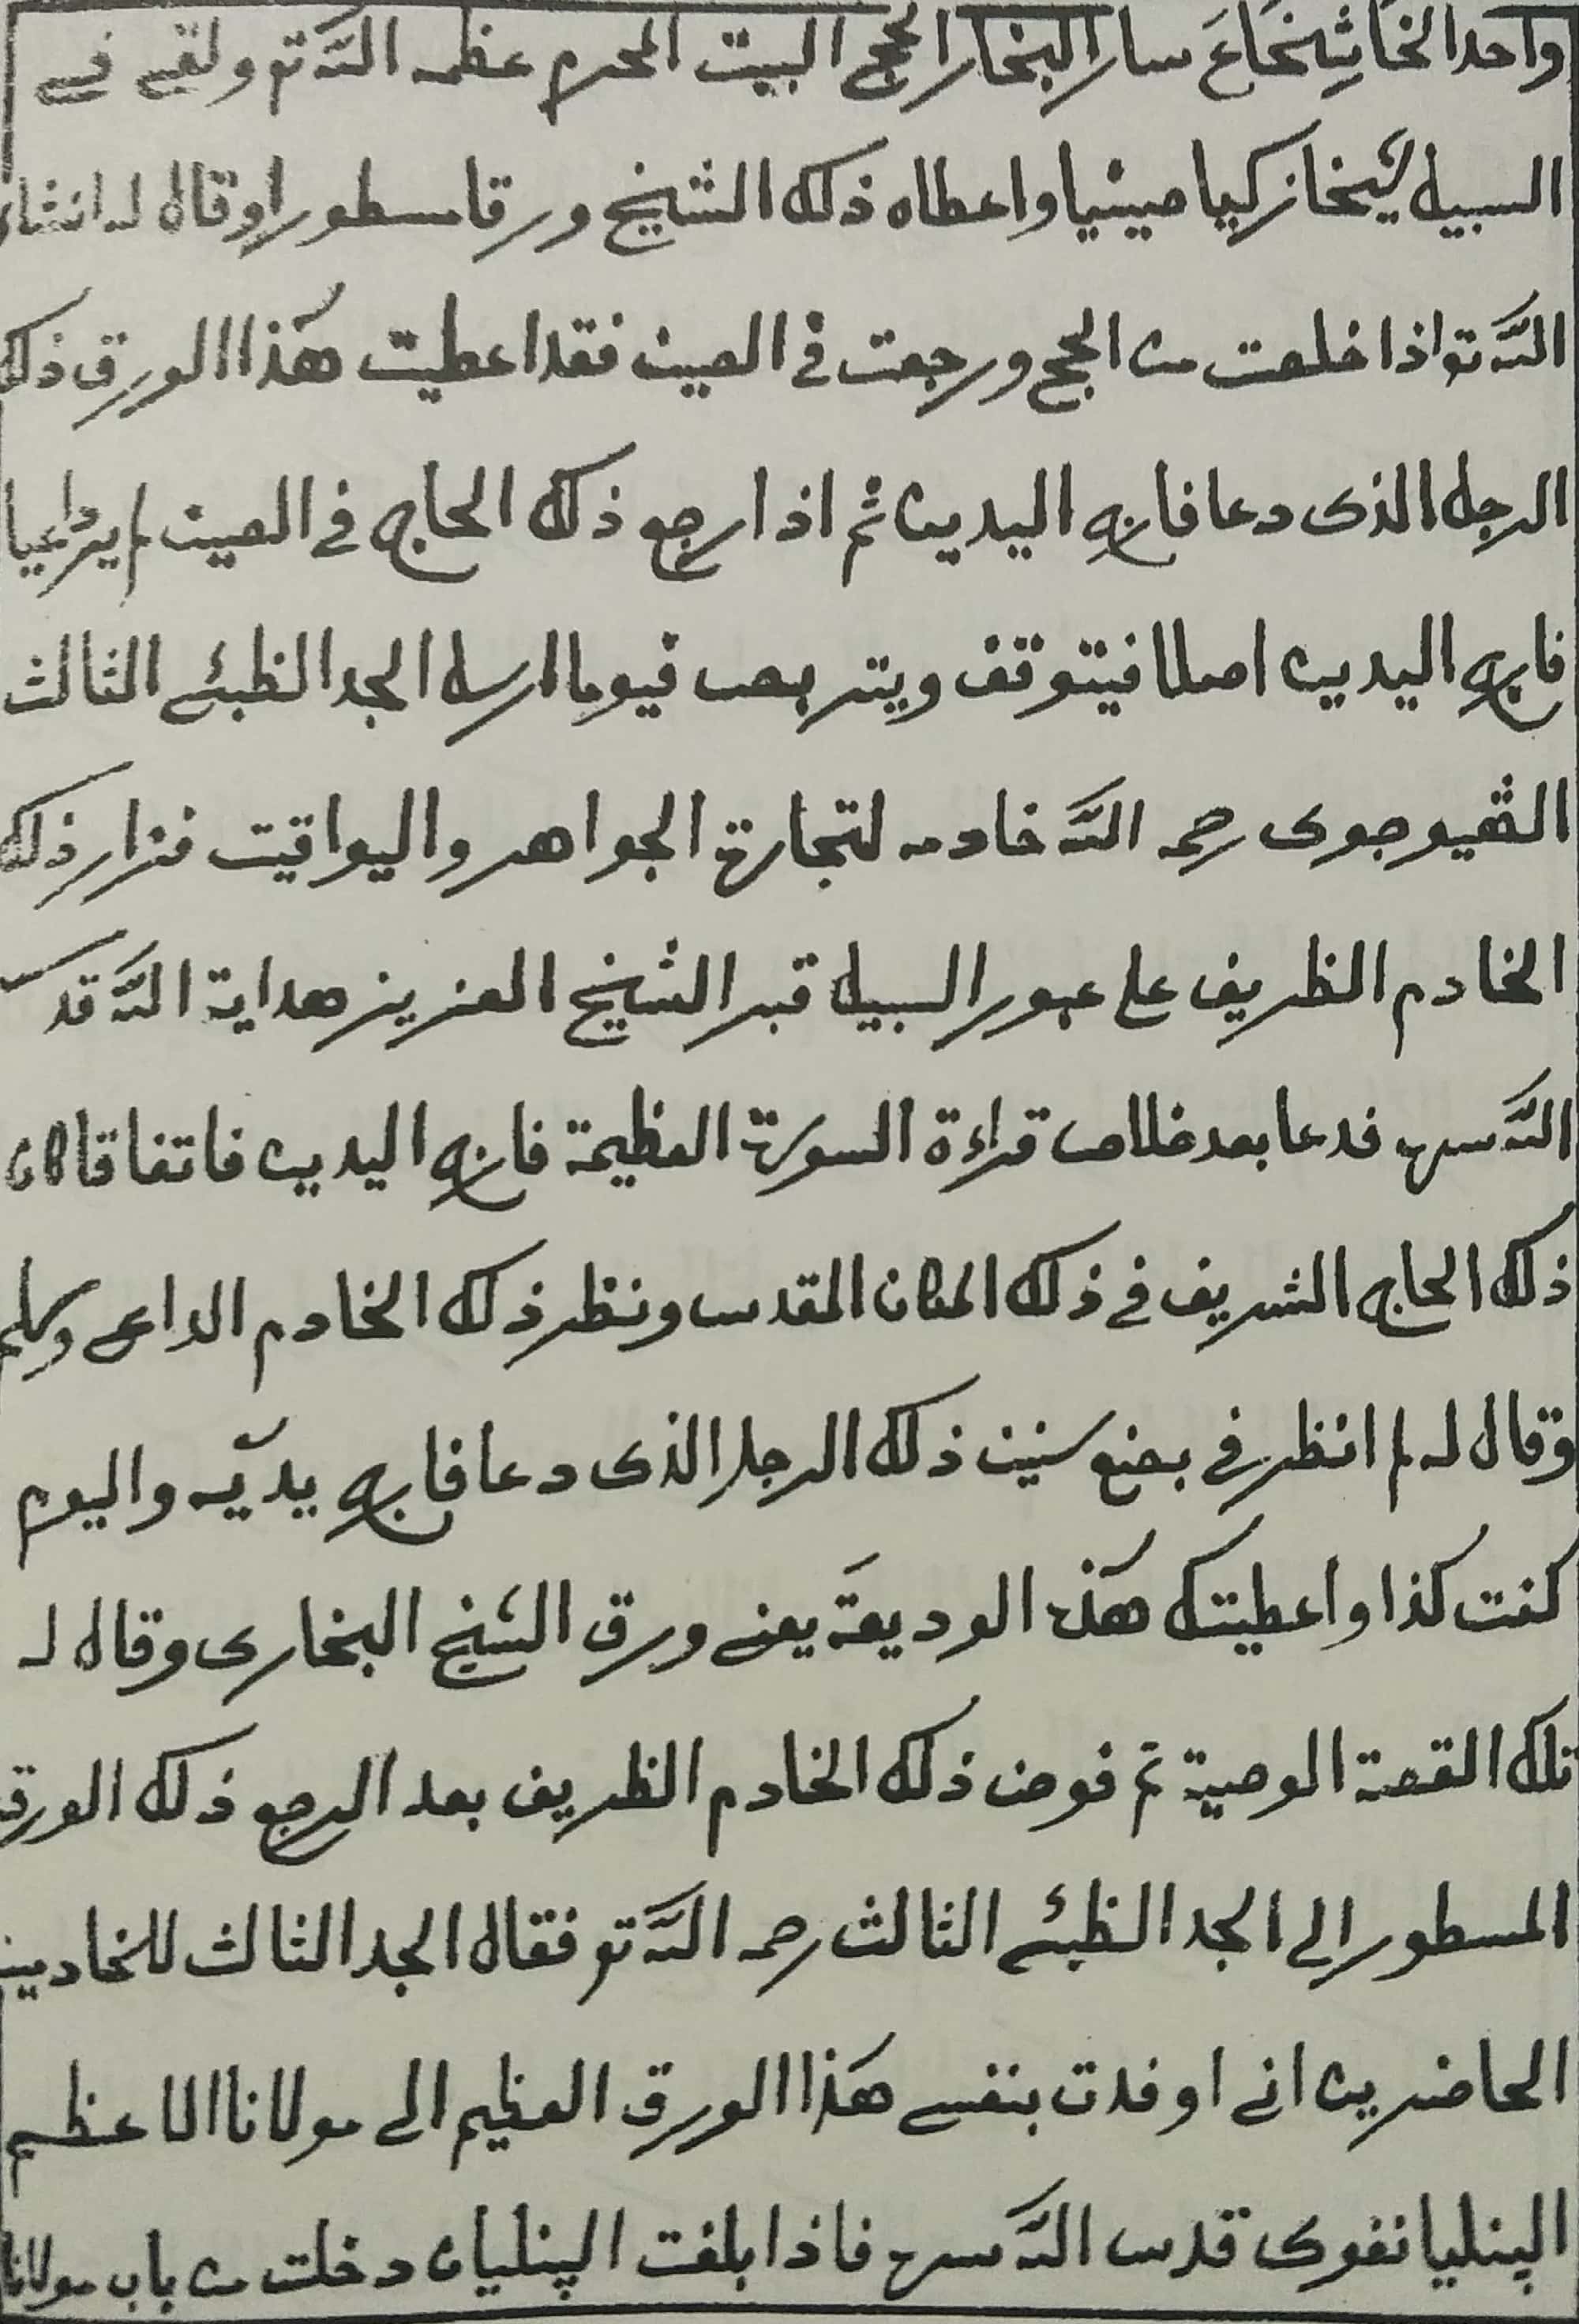 واحد الخَاثِنخَاعَ سار البخارا لحج البيت المحرم عظمه اللّٰه تم ولقي في
السبيل شيخا زكيا صينيا واعطاه ذلك الشيخ ورقا مسطورا وقال له انشاء
اللّٰه تو اذا خلصت من الحج ورجعت في الصين فقد اعطيت هٰذا الورق ذلك
الرجل الذى دعا فارج اليدين ثم اذا رجع ذلك الحاج في الصين لم ير داعيا
فارج اليدين اصلا فيتوقف ويتربص فيوما ارسل الجد الظبئي الثالث
الڤيوجوى رحمه اللّٰه خادمه لتجارة الجواهر واليواقيت فزار ذلك
الخادم الظريف على عبور السبيل قبر الشيخ العزيز هداية اللّٰه قدّس
اللّٰه سره فدعا بعد خلاص قراءة السورة العظيمة فارج اليدين فاتفاقا كان
ذلك الحاج الشريف في ذلك المكان المقدس ونظر ذلك الخادم الداعي وسلم
وقال له لم انظر في بضع سنين ذلك الرجل الذى دعا فارج يديه واليوم
كنت كذا واعطيتك هٰذه الوديعة يعني ورق الشيخ البخارى وقال له
تلك القصة الوصية ثم فوض ذلك الخادم الظريف بعد الرجع ذلك الورق
المسطور الى الجد الظبئي الثالث رحمه اللّٰه تو فقال الجد الثالث للخادمين
الحاضرين اني اوفدت بنفسي هٰذا الورق العظيم الى مولانا الاعظم
الپنليانفوى قدس اللّٰه سره فاذا بلغت الپنليان دخلت من باب مولانا